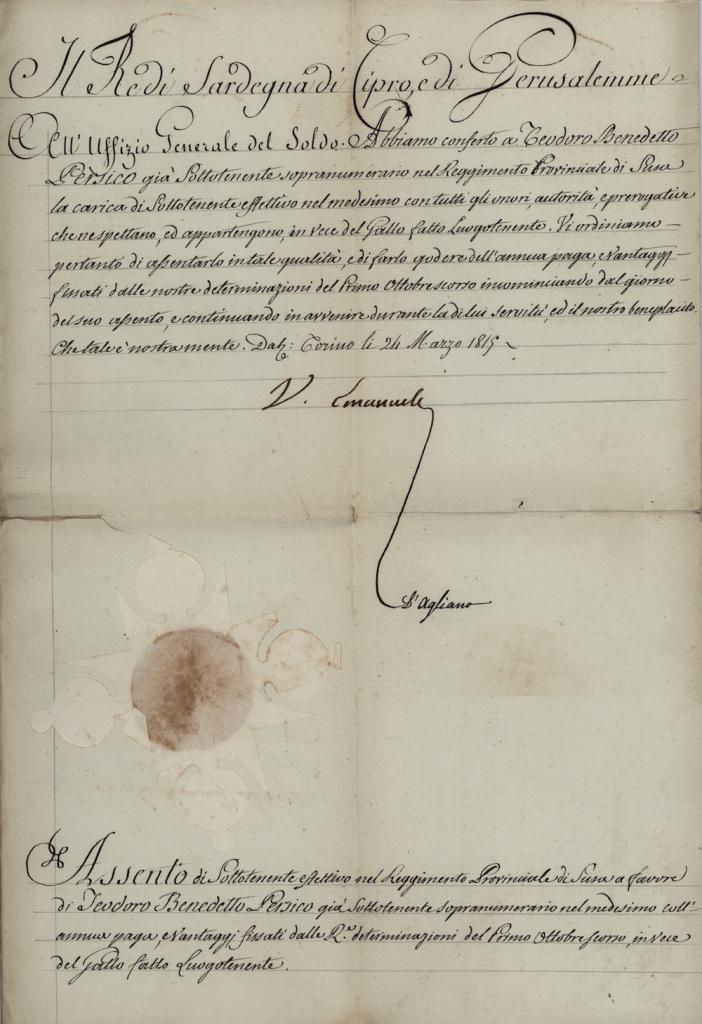 Il Re di Sardegna di Cipro, e di Gerusalemme
All'Uffizio Generale del Soldo. Abbiamo conferto a Teodoro Benedetto
Persico già Sottotenente sopranumerario nel Reggimento Provinciale di Susa
la carica di Sottotenente effettivo nel medesimo con tutti gli onori, autorità, e prerogative
che ne spettano, ed appartengono, in vece del Gallo fatto Luogotenente. Vi ordiniamo
pertanto di assentarlo in tale qualità, e di farlo godere dell'annua paga e Vantaggj
fissati dalle nostre determinazioni del Primo Ottobre scorso incominciando dal giorno
del suo assento, e continuando in avvenire durante la di lui servitù, ed il nostro beneplacito.
Che tale è nostra mente. Dat: Torino li 24 Marzo 1815
V. Emanuele
D'Agliano
Assento di Sottotenente effettivo nel Reggimento Provinciale di Susa a favore
di Teodoro Benedetto Persico già Sottotenente sopranumerario nel medesimo coll'
annua paga, e Vantaggj fissati dalle R.e determinazioni del Primo Ottobre scorso, in vece
del Gallo fatto Luogotenente.